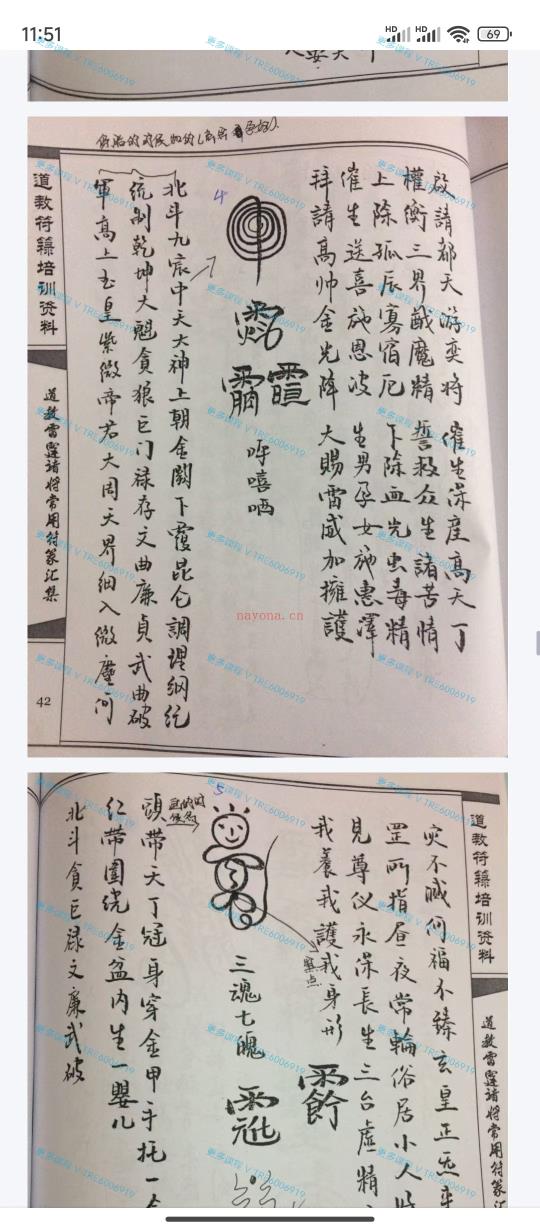 11:51
HD HD 69
啟請都天游奕將 催生保產高天丁
權衡三界馘魔精 誓救众生諸苦情
上除孤辰寡宿厄 下除血光虫毒精
催生送喜施恩波 生男孕女施惠澤
拜請高帅金光降 大賜雷威加擁護
4
呼嘻哂
北斗九宸中天大神上朝金闕下覆昆仑調理纲纪
统制乾坤大魁貪狼巨门禄存文曲廉貞武曲破
軍高上玉皇紫微帝君大周天界细入微塵何
道教符箓培训资料
道教雷霆诸将常用符篆汇集
42
nayona.cn
更多课程 V TRE6006919
道教符箓培训资料
道教雷霆诸将常用符篆汇集
灾不滅何福不臻玄皇正炁來
罡所指昼夜常輪俗居小人
見尊仪永保長生三台虛精
我養我護我身形
5
三魂七魄
頭帶天丁冠身穿金甲手托一
红帶圍绕金盆内生一嬰儿
北斗貪巨禄文廉武破